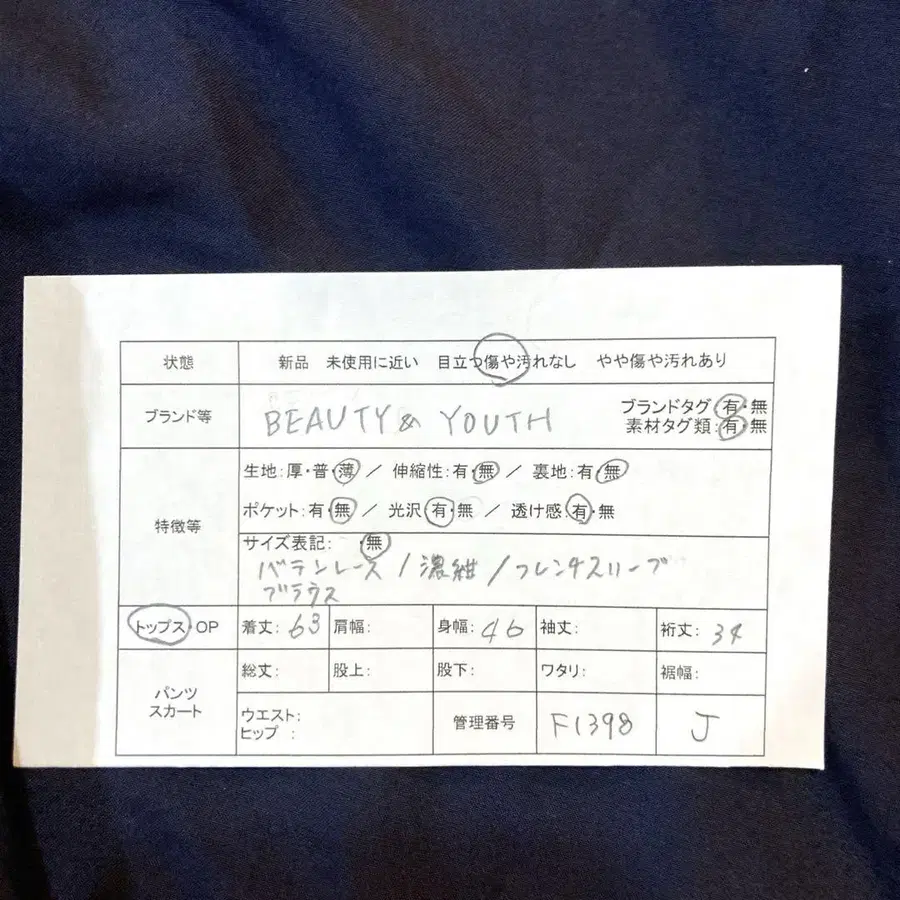 状態 新品 未使用に近い 目立つ傷や汚れなし やや傷や汚れあり
ブランド等 BEAUTY & YOUTH ブランドタグ:有・無
素材タグ類:有・無
特徴等 生地:厚・普・薄 / 伸縮性:有・無 / 裏地:有・無
ポケット:有・無 / 光沢:有・無 / 透け感:有・無
サイズ表記: ・無
バテンレース / 濃紺 / フレンチスリーブ
ブラウス
トップス・OP 着丈: 63 肩幅: 身幅: 46 袖丈: 裄丈: 34
パンツ スカート 総丈: 股上: 股下: ワタリ: 裾幅:
ウエスト:
ヒップ : 管理番号 F1398 J